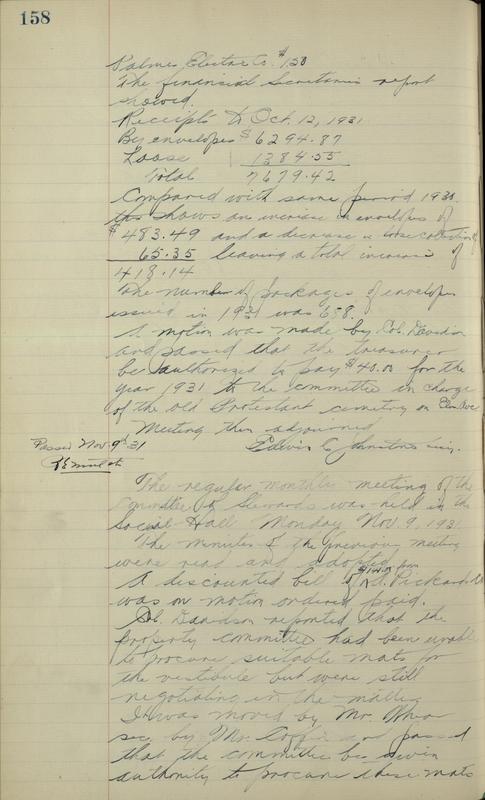 158
Palmer Electric Co. $1.50
The financial Secretaries report
showed.
Receipts to Oct. 12, 1931
By envelopes $6294.87
Loose 1384.55
Total 7679.42
Compared with same period 1930
this shows an increase in envelopes of
$483.49 and a decrease in loose collections of
65.35 leaving a total increase of
418.14
The number of packages of envelopes
issued in 1931 was 658.
A motion was made by Col. Davidson
and passed that the treasurer
be authorized to pay $40.00 for the
year 1931 to the committee in charge
of the old Protestant cemetery on Elm Ave
Meeting then adjourned
Passed Nov 9th 31
Edwin C. Johnston Sec'y.
The regular monthly meeting of the
Committee of Stewards was held in the
Social Hall Monday Nov. 9, 1931
The minutes of the previous meeting
were read and adopted.
A discounted bill of from Pickard
was on motion ordered paid.
Col. Davidson reported that the
Property committee had been unable
to procure suitable mats for
the vestibule but were still
negotiating in the matter
It was moved by Mr.
sec. by Mr. and passed
that the committee be given
authority to procure these mats